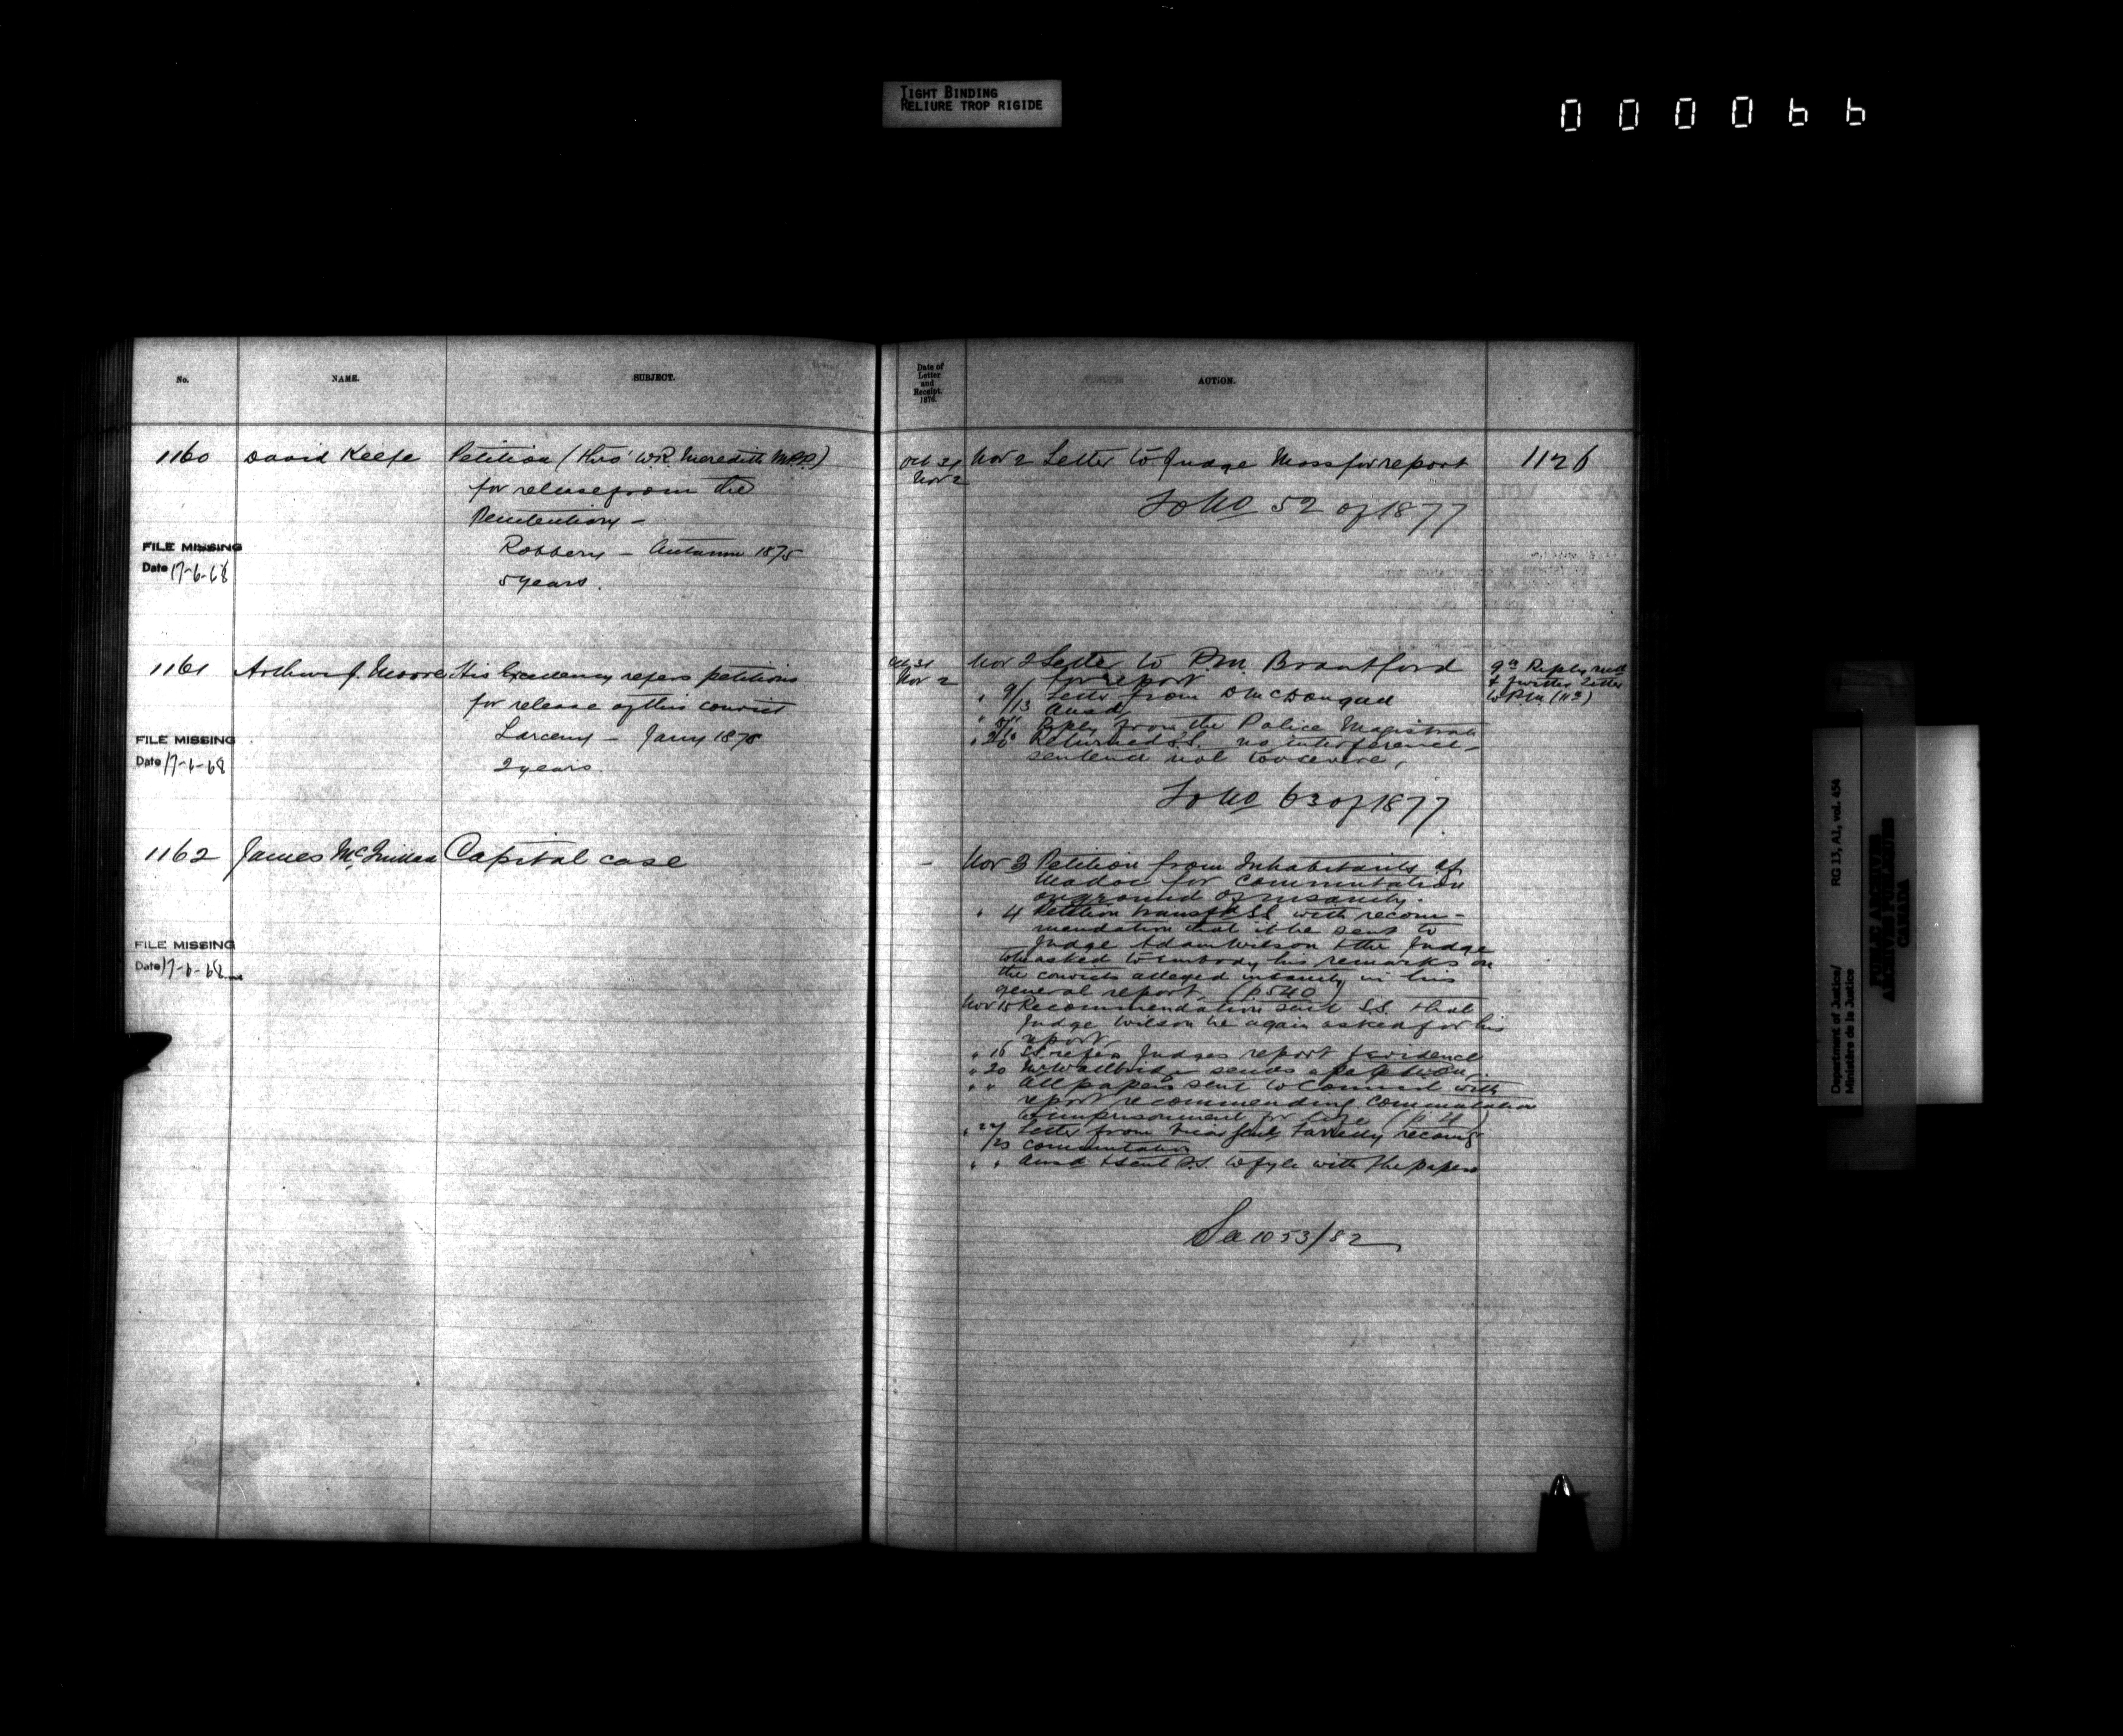 TIGHT BINDING
RELIURE TROP RIGIDE
000066
No.
NAME.
SUBJECT.
Date of
Letter
and
Receipt.
1876.
ACTION.
1160 David Keefe Petition (thro' W.R. Meredith M.P.P.)
for release from the
Penitentiary -
Robbery - Autumn 1875
5 years.
FILE MISSING
Date 17-6-68
Oct 31
Nov 2
Nov 2 Letter to Judge Moss for report
To No 52 of 1877
1126
1161 Arthur J. Moore His Excellency refers petitions
for release of this convict
Larceny - Jany 1876
2 years.
FILE MISSING
Date 17-6-68
Oct 31
Nov 2
Nov 2 Letter to P.M. Brantford
for report
" 9/13 Letter from
Ansd
Reply from the Police Magistrate
Returned S.S. no interference -
sentence not too severe,
To No 63 of 1877
9th Reply
& further letter
to P.M. (113)
1162 James Capital case
FILE MISSING
Date 17-6-68
- Nov 3 Petition from Inhabitants of
Madoc for commutation
on ground of insanity.
" 4 Petition transfd S.S. with recom-
mendation that it be sent to
Judge Adam Wilson & the Judge
to be asked to embody his remarks on
the convicts alleged insanity in his
general report. (p. 540)
Nov 15 Recommendation sent S.S. that
Judge Wilson be again asked for his
report
" 16 S.S. refers Judges report & evidence
" 20 Mr Wallbridge sends a petition
" " All papers sent to Council with
report recommending commutation
to imprisonment for life
" 22/23 Letter from Vicar Genl Farrelly recomg
commutation
" " Ansd & sent S.S. to fyle with the papers
1053/82
Department of Justice/
Ministère de la Justice
RG 13, A1, vol. 454
PUBLIC ARCHIVES
ARCHIVES PUBLIQUES
CANADA